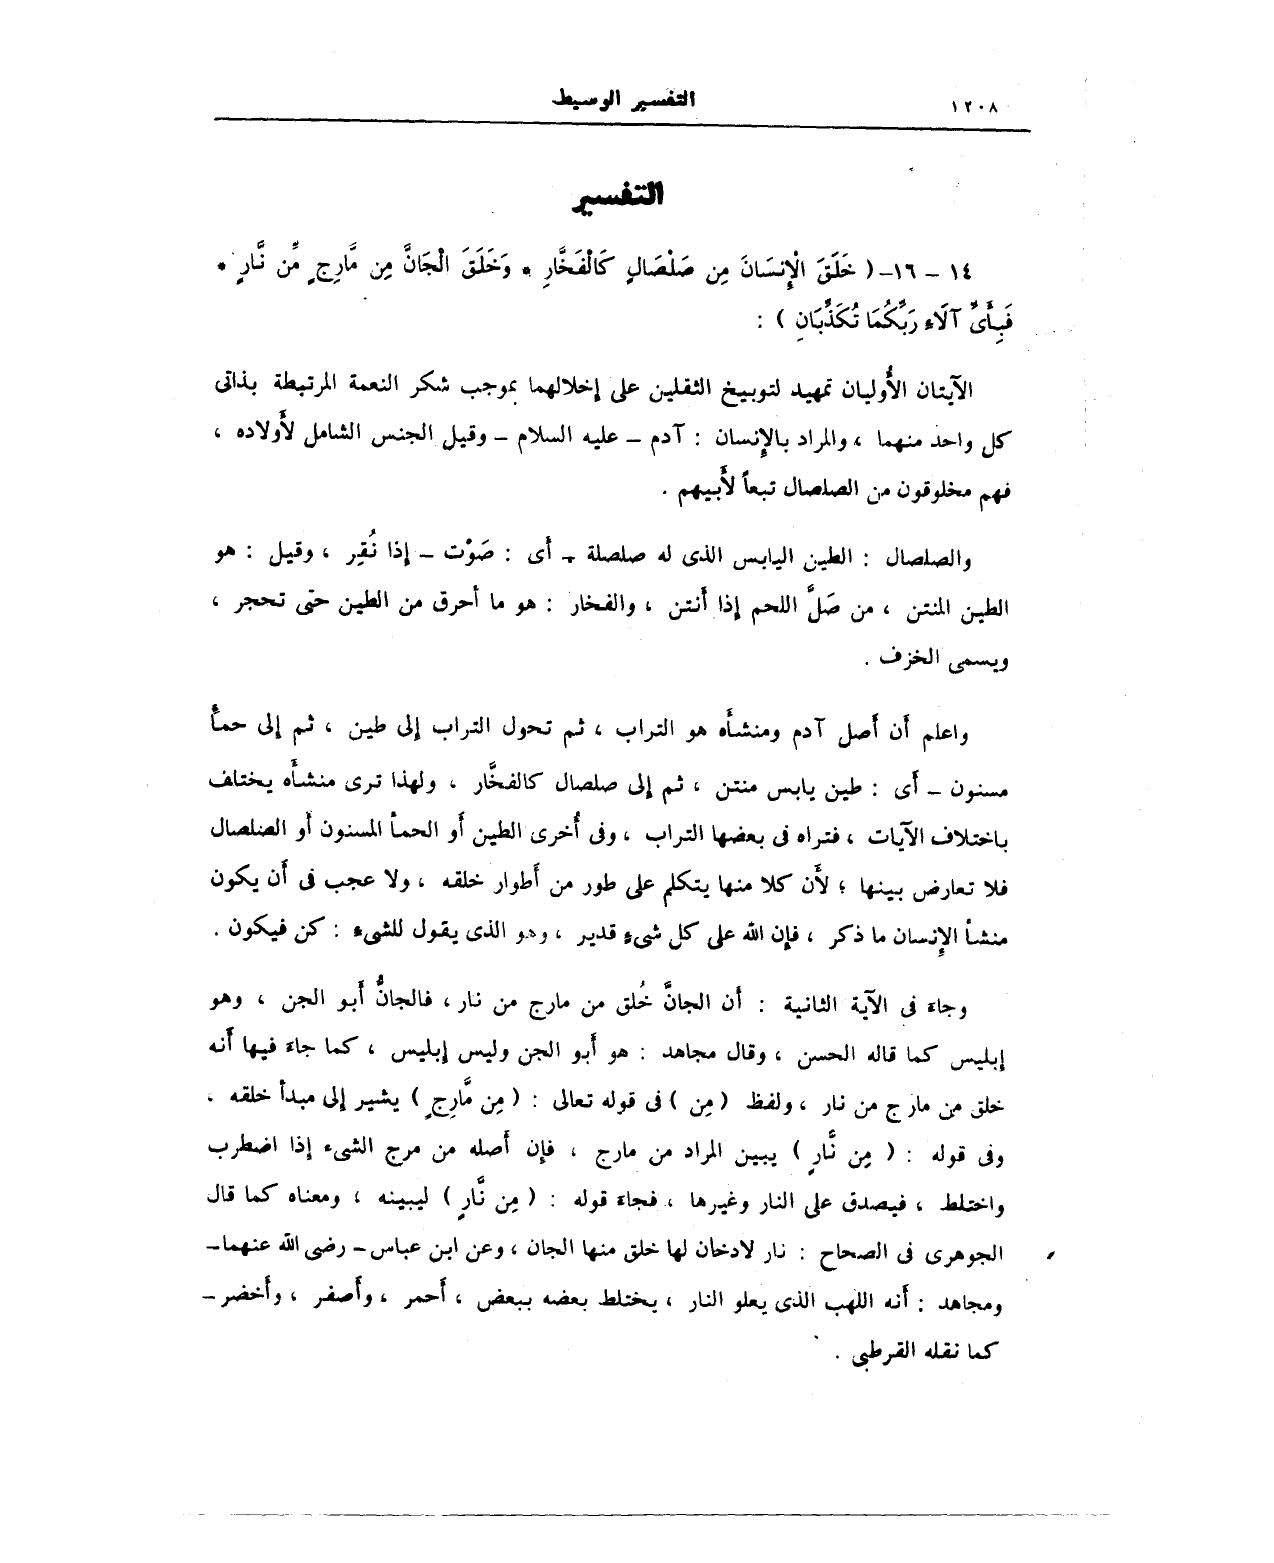 ١٢٠٨ التفسير الوسيط
التفسير
١٤ – ١٦– ( خَلَقَ الْإِنسَانَ مِن صَلْصَالٍ كَالْفَخَّارِ * وَخَلَقَ الْجَانَّ مِن مَّارِجٍ مِّن نَّارٍ *
فَبِأَىِّ آلَاءِ رَبِّكُمَا تُكَذِّبَانِ ) :
الآيتان الأُوليان تمهيد لتوبيخ الثقلين على إخلالهما بموجب شكر النعمة المرتبطة بذاتى
كل واحد منهما ، والمراد بالإِنسان : آدم – عليه السلام – وقيل الجنس الشامل لأَولاده ،
فهم مخلوقون من الصلصال تبعاً لأَبيهم .
والصلصال : الطين اليابس الذى له صلصلة – أَى : صَوْت – إذا نُقِر ، وقيل : هو
الطين المنتن ، من صَلَّ اللحم إذا أَنتن ، والفخار : هو ما أحرق من الطين حتى تحجر ،
ويسمى الخزف .
واعلم أَن أَصل آدم ومنشأَه هو التراب ، ثم تحول التراب إلى طين ، ثم إلى حمأ
مسنون – أَى : طين يابس منتن ، ثم إلى صلصال كالفخَّار ، ولهذا ترى منشأَه يختلف
باختلاف الآيات ، فتراه فى بعضها التراب ، وفى أُخرى الطين أَو الحمأ المسنون أَو الصلصال
فلا تعارض بينها ؛ لأَن كلا منها يتكلم على طور من أَطوار خلقه ، ولا عجب فى أَن يكون
منشأ الإِنسان ما ذكر ، فإن الله على كل شىءٍ قدير ، وهو الذى يقول للشىءِ : كن فيكون .
وجاءَ فى الآية الثانية : أَن الجانَّ خُلق من مارج من نار ، فالجانُّ أَبو الجن ، وهو
إبليس كما قاله الحسن ، وقال مجاهد : هو أَبو الجن وليس إبليس ، كما جاءَ فيها أَنه
خلق من مارج من نار ، ولفظ ( مِن ) فى قوله تعالى : ( مِن مَّارِجٍ ) يشير إلى مبدأ خلقه .
وفى قوله : ( مِن نَّارٍ ) يبين المراد من مارج ، فإن أَصله من مرج الشىء إذا اضطرب
واختلط ، فيصدق على النار وغيرها ، فجاءَ قوله : ( مِن نَّارٍ ) ليبينه ، ومعناه كما قال
الجوهرى فى الصحاح : نار لادخان لها خلق منها الجان ، وعن ابن عباس – رضى الله عنهما–
ومجاهد : أَنه اللهب الذى يعلو النار ، يختلط بعضه ببعض ، أَحمر ، وأَصفر ، وأَخضر –
كما نقله القرطبى .